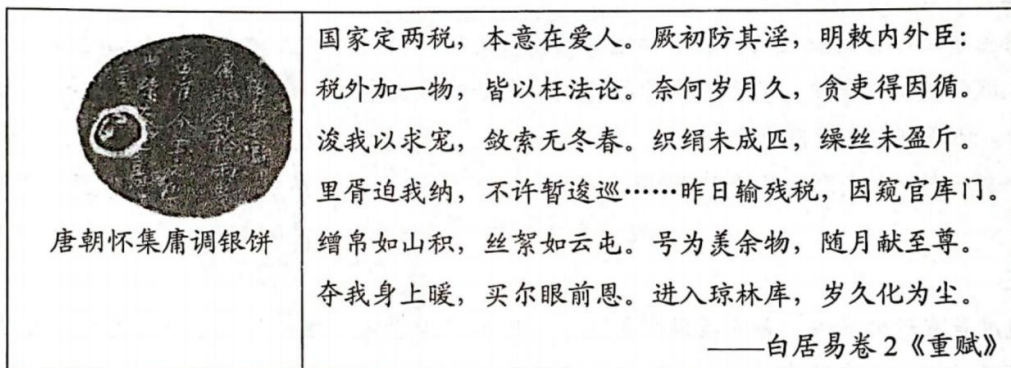 唐朝怀集庸调银饼
国家定两税，本意在爱人。厥初防其淫，明敕内外臣：
税外加一物，皆以枉法论。奈何岁月久，贪吏得因循。
浚我以求宠，敛索无冬春。织绢未成匹，缲丝未盈斤。
里胥迫我纳，不许暂逡巡……昨日输残税，因窥官库门。
缯帛如山积，丝絮如云屯。号为羡余物，随月献至尊。
夺我身上暖，买尔眼前恩。进入琼林库，岁久化为尘。
——白居易卷2《重赋》